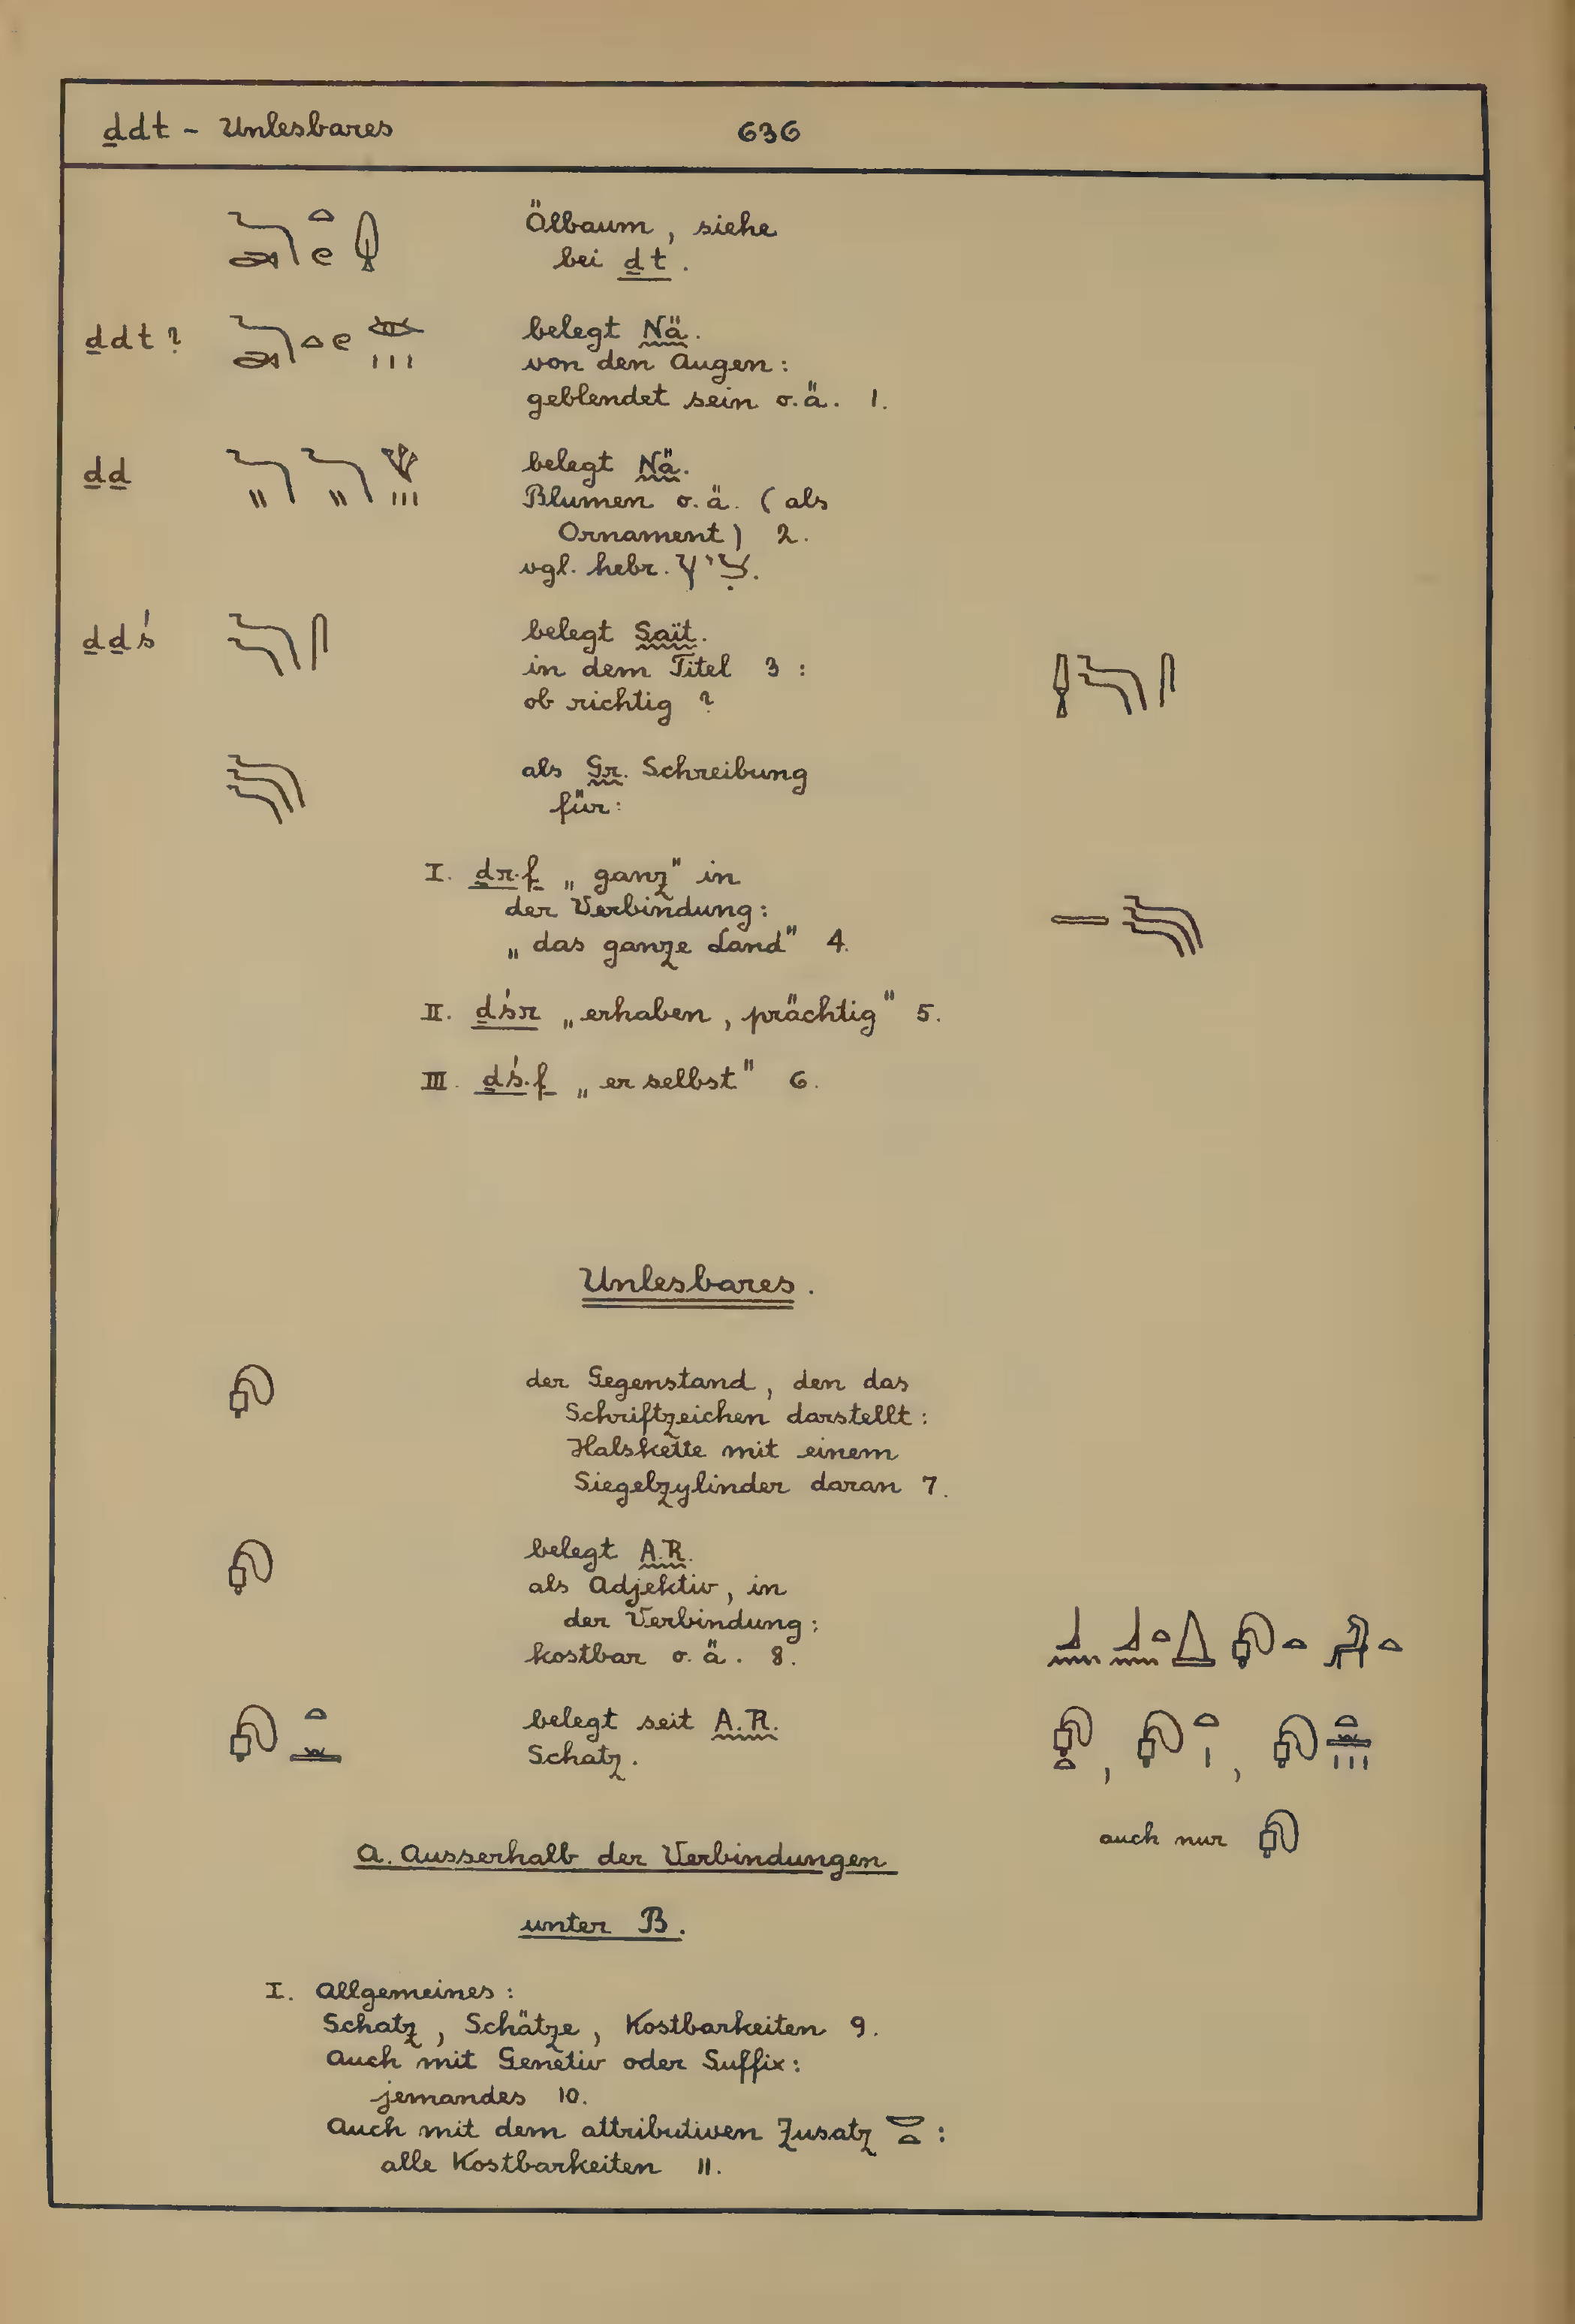 ḏdt - Unlesbares 636
Ölbaum, siehe
bei ḏt.
ḏdt? belegt Nä.
von den Augen:
geblendet sein o.ä. 1.
ḏḏ belegt Nä.
Blumen o.ä. (als
Ornament) 2.
vgl. hebr. ציץ.
ḏḏś belegt Saït.
in dem Titel 3 :
ob richtig ?
als Gr. Schreibung
für:
I. ḏr.f „ganz" in
der Verbindung:
„das ganze Land" 4.
II. ḏśr „erhaben, prächtig" 5.
III. ḏś.f „er selbst" 6.
Unlesbares.
der Gegenstand, den das
Schriftzeichen darstellt:
Halskette mit einem
Siegelzylinder daran 7.
belegt A.R.
als Adjektiv, in
der Verbindung:
kostbar o.ä. 8.
belegt seit A.R.
Schatz.
auch nur
A. Ausserhalb der Verbindungen
unter B.
I. Allgemeines:
Schatz, Schätze, Kostbarkeiten 9.
Auch mit Genetiv oder Suffix:
jemandes 10.
Auch mit dem attributiven Zusatz 𓎟𓏏 :
alle Kostbarkeiten 11.